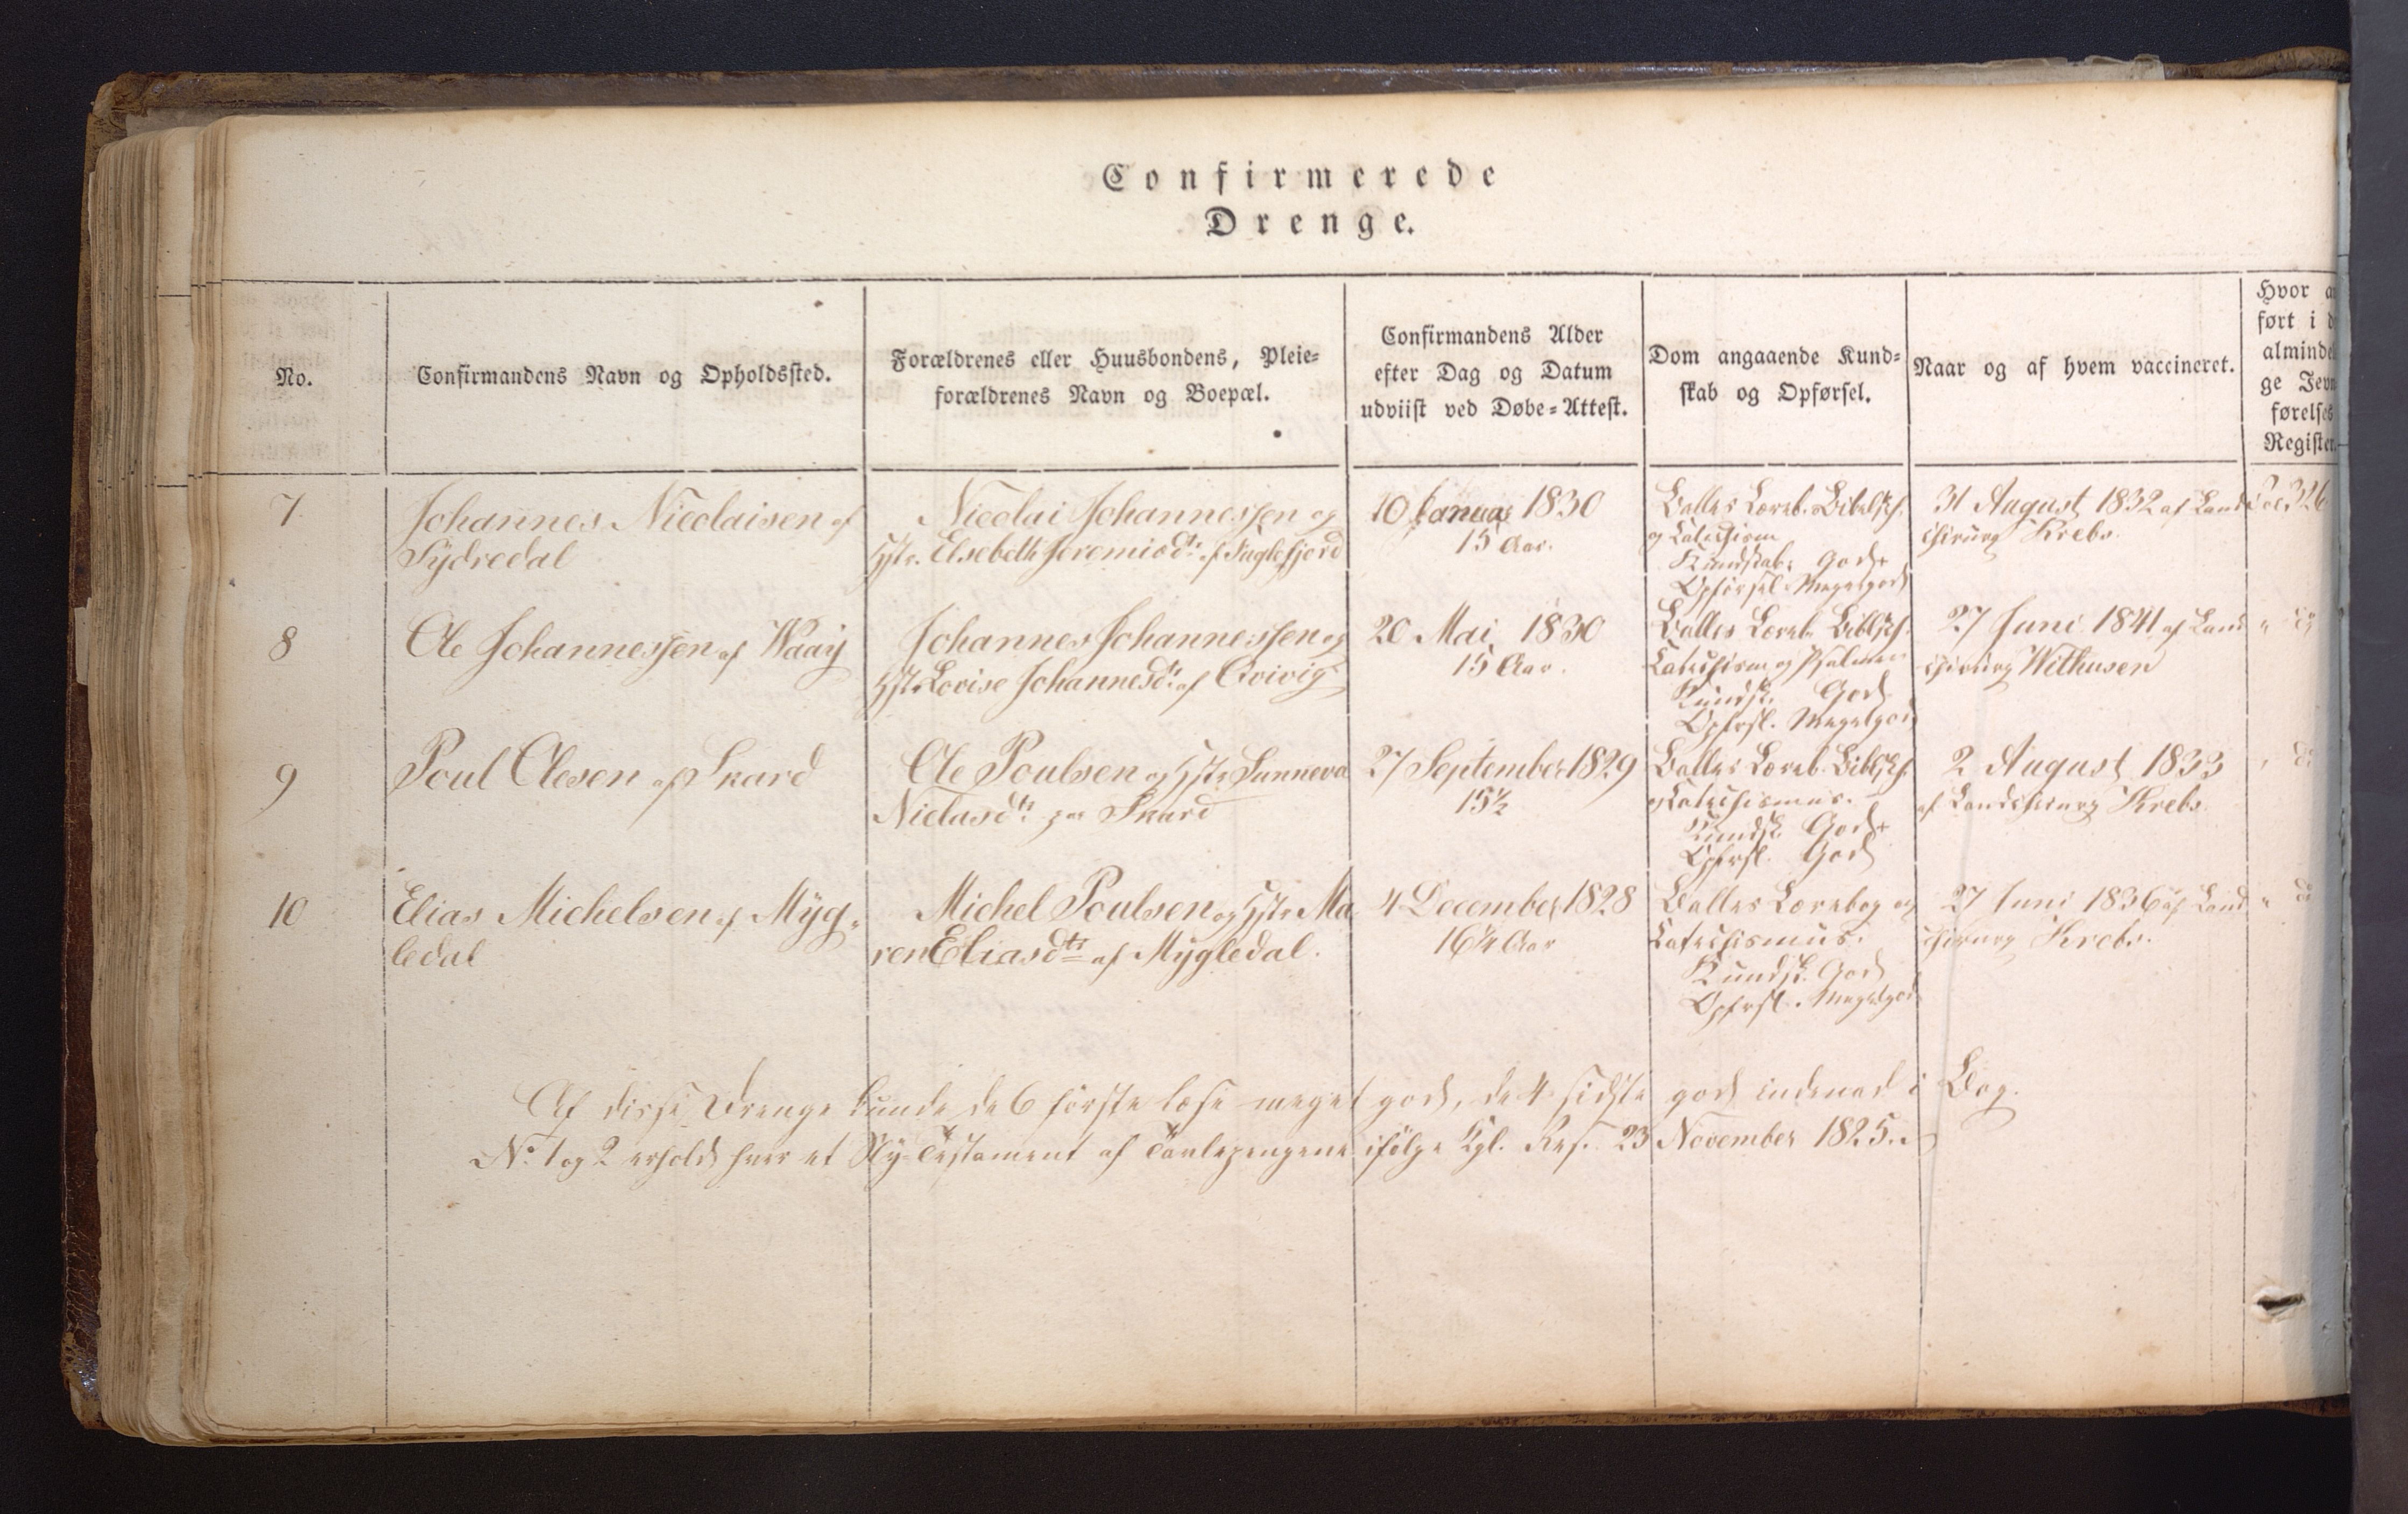 Confirmerede
Drenge.
No.
Confirmandens Navn og Opholdssted.
Forældrenes eller Huusbondens, Pleie-
forældrenes Navn og Boepæl.
Confirmandens Alder
efter Dag og Datum
udviist ved Døbe-Attest.
Dom angaaende Kund-
skab og Opførsel.
Naar og af hvem vaccineret.
Hvor
ført i
ge
Register.
7.
Johannes Nicolaisen af
Sydredal
Nicolai Johannessen og
Hstr. Elsebeth Jeremiasdtr af Fuglefjord
10 Januar 1830
15 Aar.
Balles Læreb. Bibelsk.
og Catechism
Kundskab: Godt
Opførsel Megetgod
31 August 1832 af Land
chirurg Krebs.
Pag. 326
8
Ole Johannessen af Waaij
Johannes Johannessen og
Hstr. Lovise Johannesdtr. af Qvivig
20 Mai 1830
15 Aar.
Balles Læreb. Biblsk.
Catechism og Psalmer
Kundsk. God
Opførsl. Megetgod
27 Juni 1841 af Land
chirurg Withusen
" do
9
Poul Olesen af Skard
Ole Poulsen og Hstr. Sunneva
Niclasdtr. paa Skard
27 September 1829
15½
Balles Læreb. Biblsk.
og Catechismus.
Kundsk. Godt
Opførsl. God
2 August 1833
af Landchirurg Krebs.
" do
10
Elias Michelsen af Myg-
ledal
Michel Poulsen og Hstr. Ma
ren Eliasdtr af Mygledal.
4 December 1828
16¼ Aar
Balles Lærebog og
Catechismus.
Kundsk. God
Opførsl. Megetgod
27 Juni 1836 af Land
chirurg Krebs.
" do
Af disse Drenge kunde de 6 første læse meget godt, de 4 sidste godt indenad i Bog.
No. 1 og 2 erholdt hver et Ny Testament af Tavlepengene ifølge Kgl. Res. 23 November 1825.